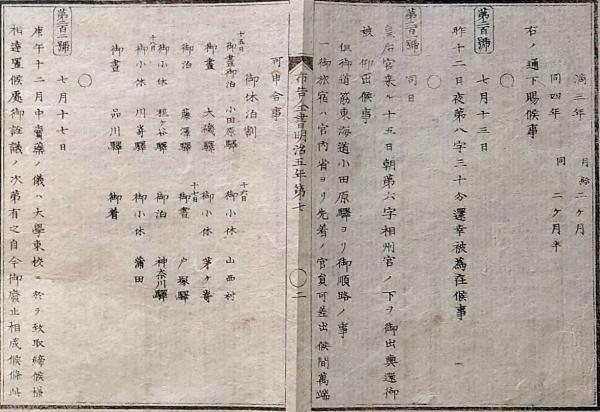 満三年 月給二ヶ月
同四年 同二ヶ月半
右ノ通下賜候事
第二百號 七月十三日
昨十二日夜第八字三十分還幸被為在候事
同日
皇后宮来ル十五日朝第六字相州宮ノ下ヲ御出輿還御
被 仰出候事
但御道筋東海道小田原驛ヨリ御順路ノ事
一御旅宿ハ宮内省ヨリ先着ノ官員可差出候間萬端
布告全書明治五年第七 〇二
可申合事
御休泊割
十五日
御晝御泊 小田原驛
御小休 山西村
御晝 大磯驛
御小休 茅ケ嵜
御泊 藤澤驛
御晝 戸塚驛
御小休 程ケ谷驛
御泊 神奈川驛
御小休 川嵜驛
御小休 蒲田
御晝 品川驛
御着
七月十七日
庚午十二月中賣藥ノ儀ハ大學東校ニ於テ致取締候様
相達置候處御詮議ノ次第有之自今御廢止相成候條此